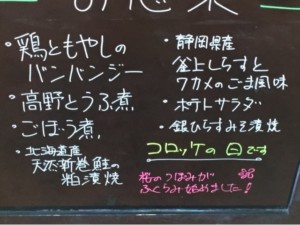 ・鶏ともやしの
バンバンジー
・高野とうふ煮
・ごぼう煮
・北海道産
天然新巻鮭の
粕漬焼
・静岡県産
釜上しらすと
ワカメのごま風味
・ポテトサラダ
・銀ひらすみそ漬焼
コロッケの日です
桜のつぼみが
ふくらみ始めました!